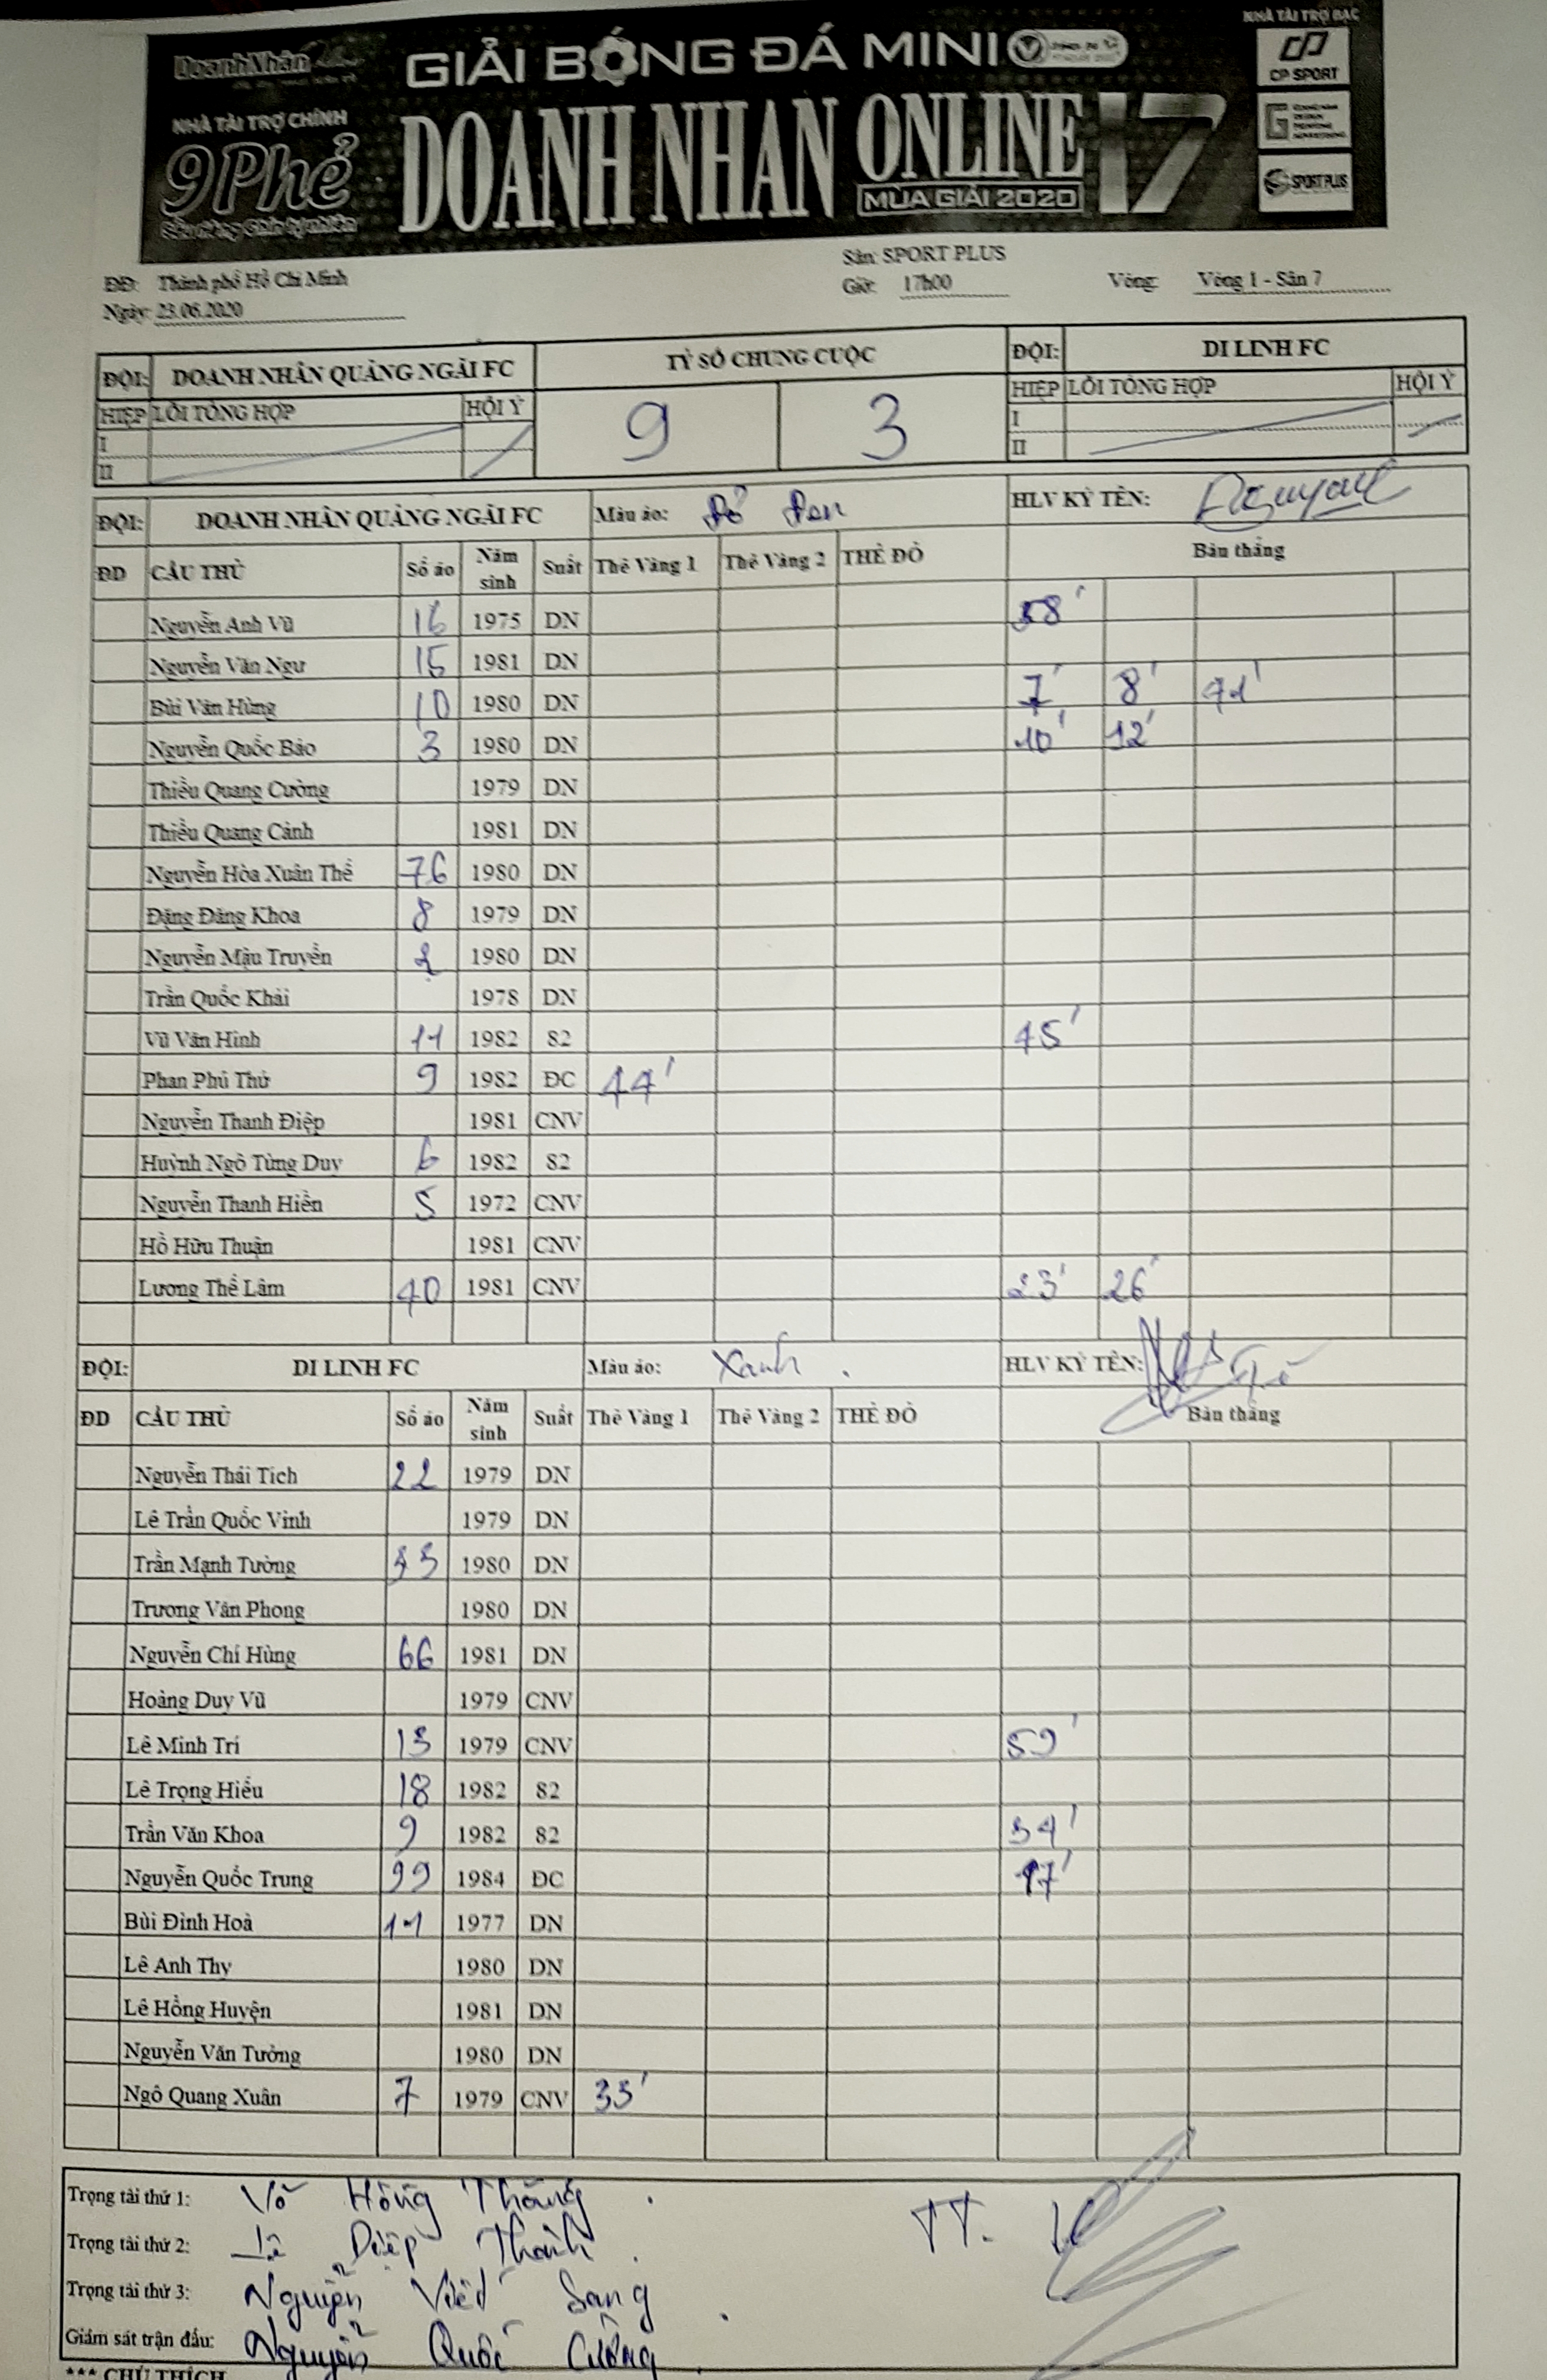 DoanhNhân
GIẢI BÓNG ĐÁ MINI
NHÀ TÀI TRỢ CHÍNH
9Phẻ
DOANH NHAN ONLINE 17
MÙA GIẢI 2020
NHÀ TÀI TRỢ BẠC
CP SPORT
SPORT PLUS
ĐĐ: Thành phố Hồ Chí Minh
Ngày: 23.06.2020
Sân: SPORT PLUS
Giờ: 17h00
Vòng: Vòng 1 - Sân 7
ĐỘI: DOANH NHÂN QUẢNG NGÃI FC TỶ SỐ CHUNG CUỘC ĐỘI: DI LINH FC
HIỆP LỖI TỔNG HỢP HỘI Ý 9 3 HIỆP LỖI TỔNG HỢP HỘI Ý
I I
II II
ĐỘI: DOANH NHÂN QUẢNG NGÃI FC Màu áo: Đỏ Đen HLV KÝ TÊN:
ĐD CẦU THỦ Số áo Năm sinh Suất Thẻ Vàng 1 Thẻ Vàng 2 THẺ ĐỎ Bàn thắng
Nguyễn Anh Vũ 16 1975 DN 58'
Nguyễn Văn Ngư 15 1981 DN
Bùi Văn Hùng 10 1980 DN 7' 8' 41'
Nguyễn Quốc Bảo 3 1980 DN 10' 12'
Thiều Quang Cường 1979 DN
Thiều Quang Cảnh 1981 DN
Nguyễn Hòa Xuân Thế 76 1980 DN
Đặng Đăng Khoa 8 1979 DN
Nguyễn Mậu Truyền 2 1980 DN
Trần Quốc Khải 1978 DN
Vũ Văn Hình 11 1982 82 45'
Phan Phú Thứ 9 1982 ĐC 44'
Nguyễn Thanh Điệp 1981 CNV
Huỳnh Ngô Tùng Duy 6 1982 82
Nguyễn Thanh Hiền 5 1972 CNV
Hồ Hữu Thuận 1981 CNV
Lương Thế Lâm 40 1981 CNV 23' 26'
ĐỘI: DI LINH FC Màu áo: Xanh . HLV KÝ TÊN:
ĐD CẦU THỦ Số áo Năm sinh Suất Thẻ Vàng 1 Thẻ Vàng 2 THẺ ĐỎ Bàn thắng
Nguyễn Thái Tích 22 1979 DN
Lê Trần Quốc Vinh 1979 DN
Trần Mạnh Tường 1980 DN
Trương Văn Phong 1980 DN
Nguyễn Chí Hùng 66 1981 DN
Hoàng Duy Vũ 1979 CNV
Lê Minh Trí 13 1979 CNV 59'
Lê Trọng Hiếu 18 1982 82
Trần Văn Khoa 9 1982 82 34'
Nguyễn Quốc Trung 99 1984 ĐC 17'
Bùi Đình Hoà 11 1977 DN
Lê Anh Thy 1980 DN
Lê Hồng Huyện 1981 DN
Nguyễn Văn Tưởng 1980 DN
Ngô Quang Xuân 7 1979 CNV 33'
Trọng tài thứ 1: Võ Hồng Thăng .
Trọng tài thứ 2: Lê Diệp Thành .
Trọng tài thứ 3: Nguyễn Việt Sang .
Giám sát trận đấu: Nguyễn Quốc Cường .
TT.
*** CHÚ THÍCH